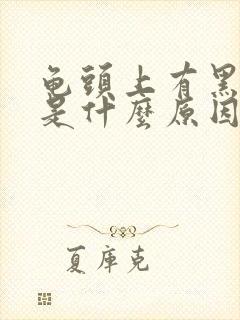 龟頭上有黑
是什麼原因
夏庫克